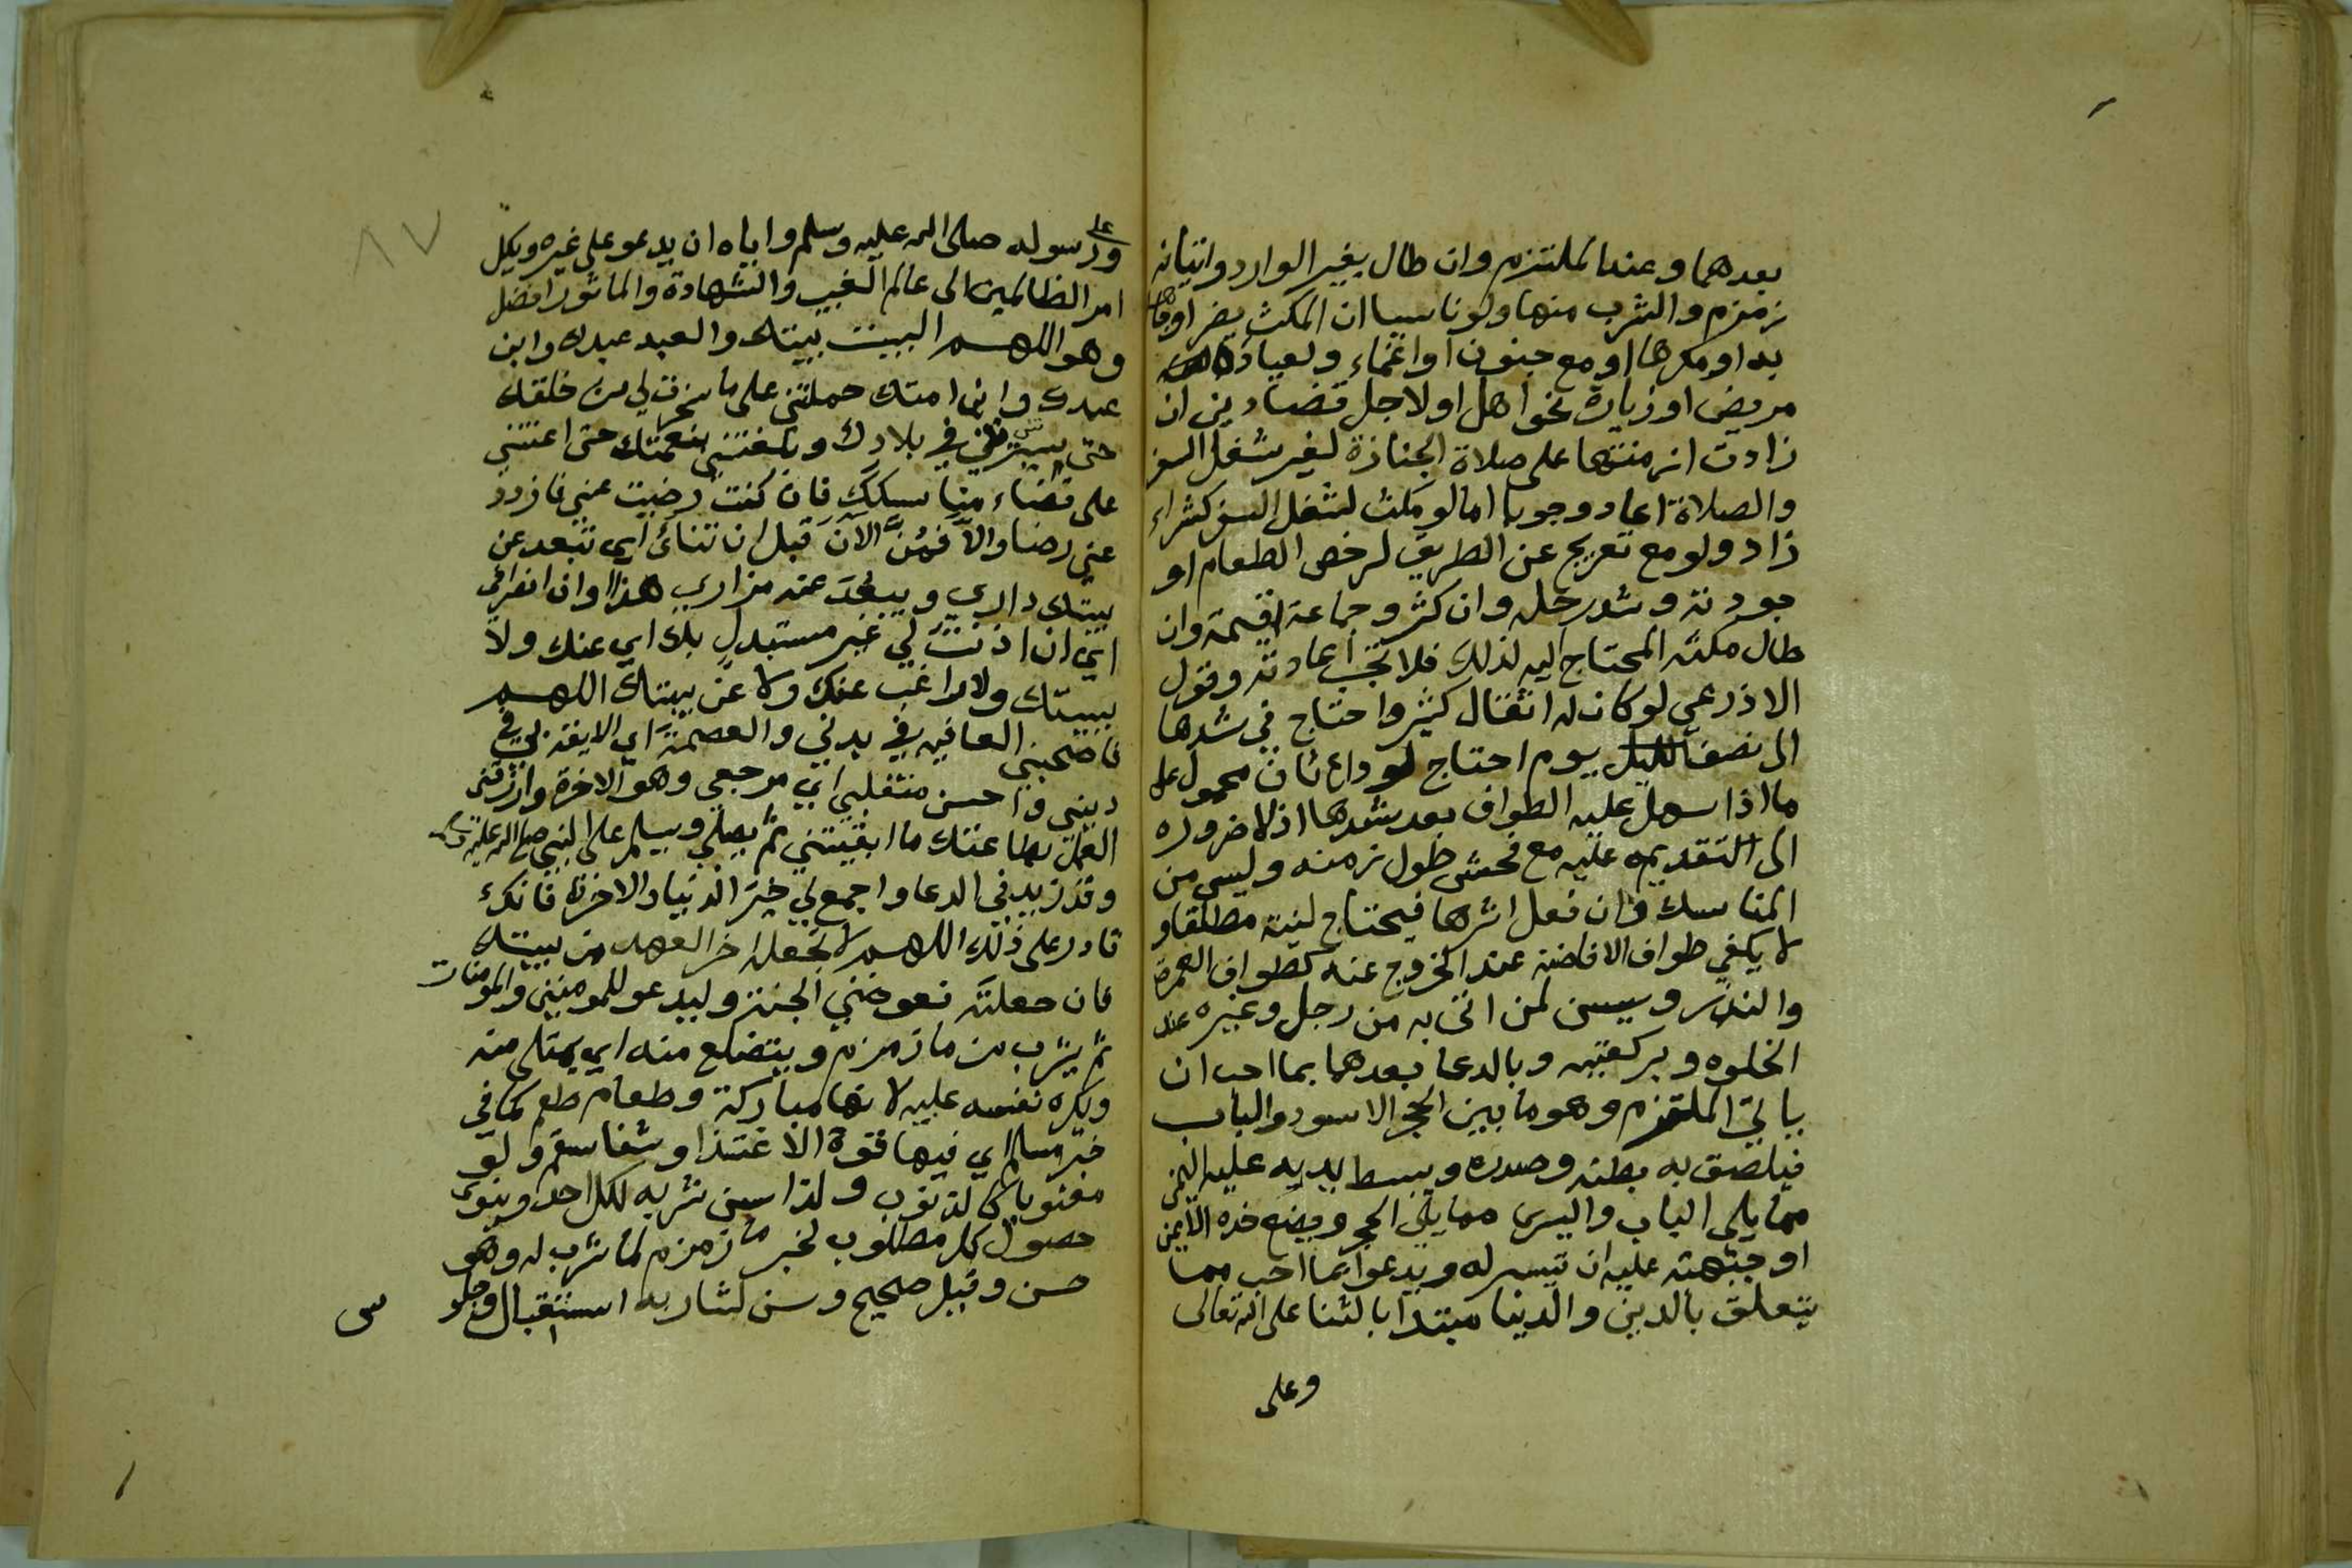 بعدهما وعند الملتزم وان طال بغير الوارد واتيانه
زمزم والشرب منها ولو ناسيا ان المكث يضر او جاهلا
به او مكرها او مع جنون او اغماء ولعيادة
مريض او زيارة نحو اهل او لاجل قضا دين ان
زادت ازمنتها على صلاة الجنازة لغير شغل السفر
والصلاة اعاد وجوبا اما لو مكث لشغل السفر كشراء
زاد ولو مع تعريج عن الطريق لرخص الطعام او
جودته وشد رحل وان كثر وجماعة اقيمة وان
طال مكثه المحتاج اليه لذلك فلا تجب اعادته وقول
الاذرعي لو كان له اثقال كثير واحتاج في شدها
الى نصف يوم احتاج لوداع ثان محمول على
ما اذا سهل عليه الطواف بعد شدها اذ لا ضروره
الى التقديم عليه مع فحش طول زمنه وليس من
المناسك وان فعل اثرها فيحتاج لنية مطلقا و
لا يكفي طواف الافاضة عند الخروج عنه كطواف العمرة
والنذر ويسن لمن اتى به من رجل وغيره عند
الخلوه وبركعتيه وبالدعا بعدهما بما احب ان
ياتي الملتزم وهو ما بين الحجر الاسود والباب
فيلصق به بطنه وصدره ويبسط يديه عليه اليمنى
مما يلي الباب واليسرى مما يلي الحجر ويضع خده الايمن
او جبهته عليه ان تيسر له ويدعوا بما احب مما
يتعلق بالدين والدنيا مبتدا بالثنا على الله تعالى
وعلى
٨٧
وعلى رسوله صلى الله عليه وسلم واياه ان يدعو على غيره ويكل
امر الظالمين الى عالم الغيب والشهادة والماثور افضل
وهو اللهم البيت بيتك والعبد عبدك وابن
عبدك وابن امتك حملتني على ما سخرت لي من خلقك
حتى سيرتني في بلادك وبلغتني بنعمتك حتى اعنتني
على قضاء مناسكك فان كنت رضيت عني فازدد
عني رضا والا فمن الآن قبل ان تنائ اي تبعد عن
بيتك داري ويبعد عنه مزاري هذا اوان انصرافي
اي ان اذنت لي غير مستبدل بك اي عنك ولا
ببيتك ولا راغب عنك ولا عن بيتك اللهم
فاصحبني العافيه في بدني والعصمة اي
ديني واحسن منقلبي اي مرجعي وهو الاخرة وارزقني
العمل بطاعتك ما ابقيتني ثم يصلي ويسلم على النبي صلى الله عليه وسلم
وقد زيد في الدعا واجمع لي خير الدنيا والاخرة فانك
قادر على ذلك اللهم لا تجعله اخر العهد من بيتك
فان جعلته فعوضني الجنة وليدعو للمومنين والمومنات
ثم يشرب من ما زمزم ويتضلع منه اي يمتلى منه
ويكره نفسه عليه لانها مباركة وطعام طعم كما في
خبر مسلم اي فيها قوة الاغتذا وشفا سقم ولو
معنويا كالذنوب ولذا سن شربه لكل احد وينوي
حصول كل مطلوب لخبر ما زمزم لما شرب له وهو
حسن وقيل صحيح وسن لشاربه استقبال وجلو
س